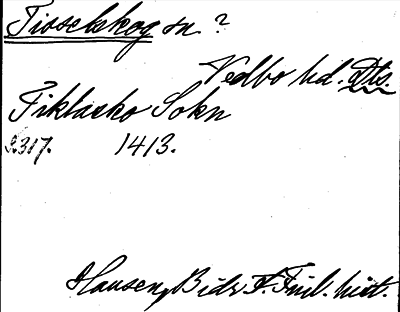 Tisselskog sn ?
Vedbo hd. Dls.
Fiklasko Sokn
S.317. 1413.
Hausen, Bidr. t. Finl. hist.